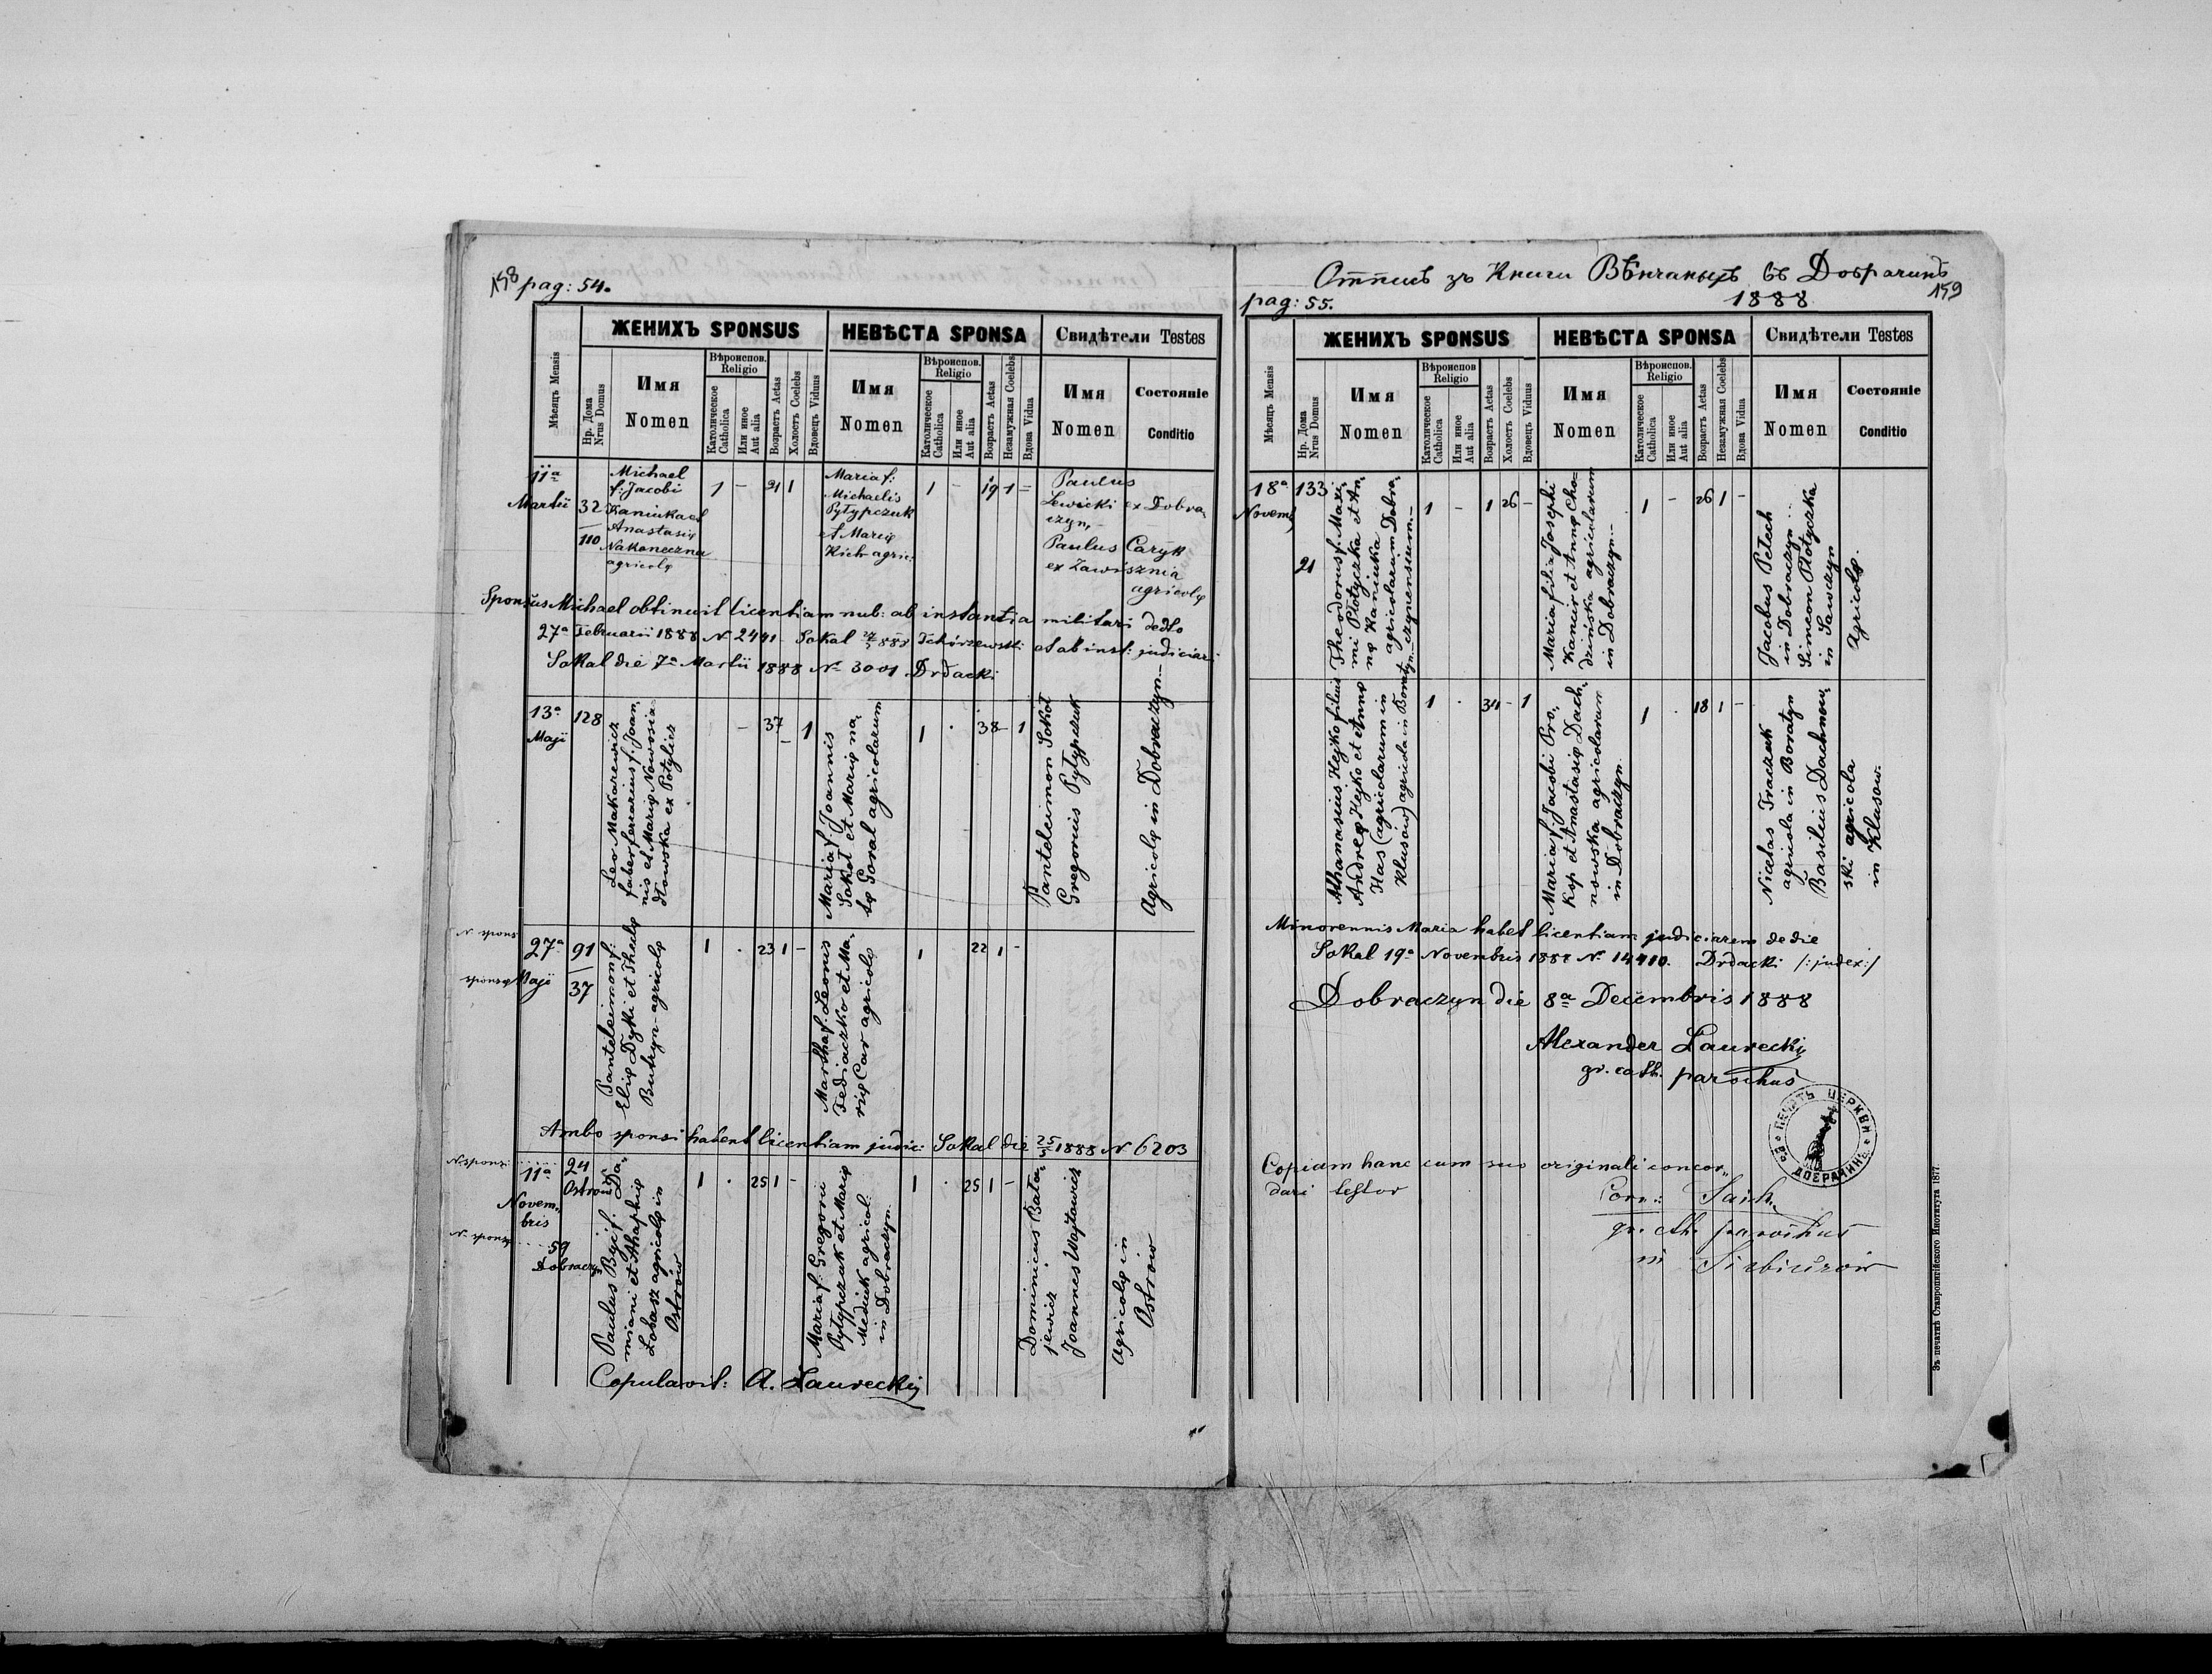 158 pag: 54.
ЖЕНИХЪ SPONSUS
НЕВѢСТА SPONSA
Свидѣтели Testes
Мѣсяцъ Mensis
Нр. Дома
Nrus Domus
Имя
Nomen
Вѣроиспов.
Religio
Католическое
Catholica
Или иное
Aut alia
Возрастъ Aetas
Холостъ Coelebs
Вдовецъ Viduus
Имя
Nomen
Вѣроиспов.
Religio
Католическое
Catholica
Или иное
Aut alia
Возрастъ Aetas
Незамужная Coelebs
Вдова Vidua
Имя
Nomen
Состояніе
Conditio
11a
Martii
32
110
Michael
f: Jacobi
Kaniuka et
Anastasię
Nakoneczna
agricolę
1 - 21 1
Maria f:
Michaelis
Pytypczuk
et Marię
Kich agric:
1 - 19 1 =
Paulus
Lewicki ex Dobra,
czyn,-
Paulus Caryk
ex Zawisznia
agricolę
Sponsus Michael obtinuit licentiam nub: ab instantia militari dedto
27a Februarii 1888 N 2441 - Sokal 1888 Tchórzewski et ab inst: judiciari
Sokal die 7a Martii 1888 No 3001 Drdacki
13a
Maji
128
Leo Makarewicz
faber ferrarius f. Joan,
nis et Marię Nowosia,
dłowska ex Potylicz
- 37 - 1
Maria f. Joannis
Sokot et Marię na,
tę Goral agricolarum
1 . 38 - 1
Panteleimon Sokot
Gregorius Pytypczuk
Agricolę in Dobraczyn.-
N spons
27a
sponsę Maji
91
37
Panteleimon f:
Elię Dyki et Theclę
Butryn - agricolę
1 . 23 1 -
Martha f. Leonis
Fediaczko et Ma,
rię Car agricolę
1 22 1 -
Ambo sponsi habent licentiam judic: Sokal die 25/5 1888 N 6203
N sponsi
11a
Novem,
bris
N. sponsę
24
Ostrow
59
Dobraczyn
Paulus Byj f. Da,
miani et Ahaphię
Łobasz agricolę in
Ostrów
1 . 25 1 -
Maria f: Gregorii
Pytypczuk et Marię
Meduik agricol:
in Dobraczyn.
1 . 25 1 -
Dominicus Bata,
jewicz
Joannes Wojtowicz
Agricolę in
Ostrów
Copulavit: A. Laurecki
Оттисъ зъ Книги Вѣнчаныхъ въ Добрачинѣ
pag: 55.
1888
159
ЖЕНИХЪ SPONSUS
НЕВѢСТА SPONSA
Свидѣтели Testes
Мѣсяцъ Mensis
Нр. Дома
Nrus Domus
Имя
Nomen
Вѣроиспов.
Religio
Католическое
Catholica
Или иное
Aut alia
Возрастъ Aetas
Холостъ Coelebs
Вдовецъ Viduus
Имя
Nomen
Вѣроиспов.
Religio
Католическое
Catholica
Или иное
Aut alia
Возрастъ Aetas
Незамужная Coelebs
Вдова Vidua
Имя
Nomen
Состояніе
Conditio
18a
Novemb
133
21
Theodorus f. Maxi,
mi Płotyczka et An,
nę Kaniuka
agricolarum Dobra,
czynensium.-
1 - 1 26 -
Maria filia Josephi
Kancir et Annę Cho=
dzińska agricolarum
in Dobraczyn.-
1 - 26 1 -
Jacobus Petech
in Dobraczyn ...
Simeon Płotyczka
in Sawczyn
Agricolę.
Athanasius Hejko filius
Andreę Hejko et Annę
Has (agricolarum in
Klusów) agricola in Boratyn
1 . 34 - 1
Maria f. Jacobi Pro,
Kop et Anastasię Dach,
nowska agricolarum
in Dobraczyn.
1 . 18 1 -
Nicetas Traczuk
agricola in Boratyn
Basilius Dachnow,
ski agricola
in Klusow.
Minorennis Maria habet licentiam judiciarem de die
Sokal 19a Novembris 1888 N. 14410. Drdacki /:judex:/
Dobraczyn die 8a Decembris 1888
Alexander Laurecki
gr. cath. parochus
ПЕЧАТЬ ЦЕРКВИ
ДОБРАЧИНѢ
Copiam hanc cum suo originali concor,,
dari testor
gr. cth. parochus
in
Зъ печатнѣ Ставропигійского Института 1877.